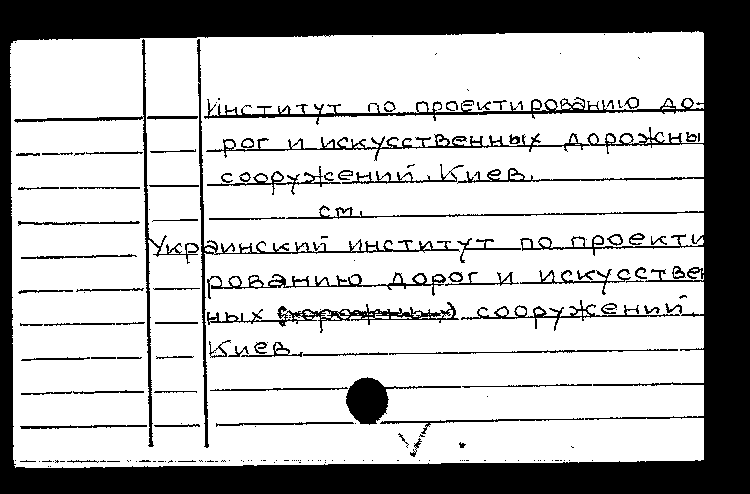 Институт по проектированию до-
рог и искусственных дорожны
сооружений. Киев.
см.
Украинский институт по проекти
рованию дорог и искусствен
ных (дорожных) сооружений.
Киев.